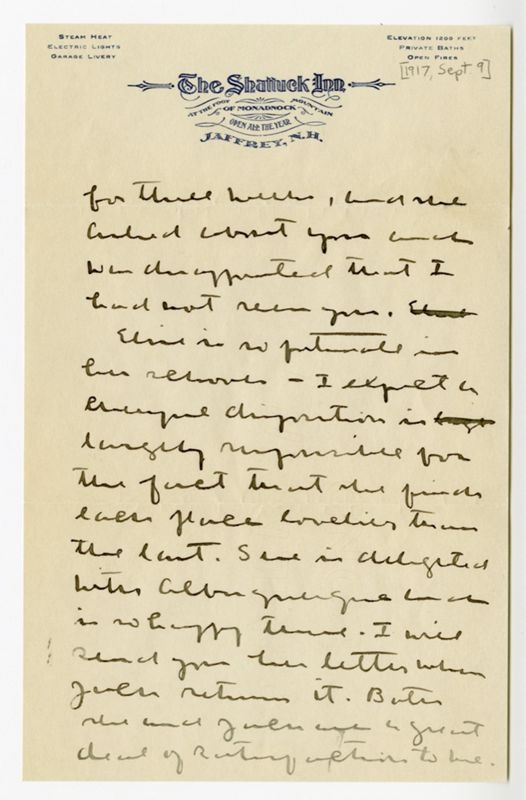 STEAM HEAT
ELECTRIC LIGHTS
GARAGE LIVERY
ELEVATION 1200 FEET
PRIVATE BATHS
OPEN FIRES
[1917, Sept. 9]
The Shattuck Inn
AT THE FOOT OF MONADNOCK MOUNTAIN
OPEN ALL THE YEAR
JAFFREY, N.H.
for three weeks, and she
asked about you and
was disappointed that I
had not seen you. Elsie
Elsie is so fortunate in
her schools – I expect a
disposition is
largely responsible for
the fact that she finds
each place lovelier than
the last. She is delighted
with Albuquerque and
is so happy there. I will
send you her letter when
returns it. Both
she and are a great
deal of satisfaction to me.